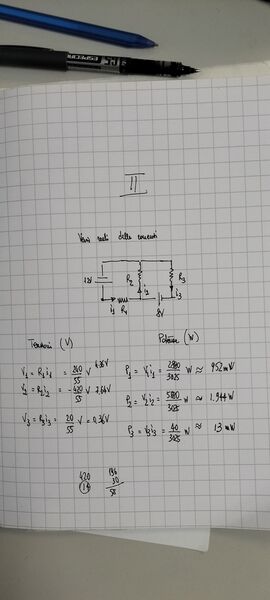 II
Versi reali delle correnti
12V
R2
i2
R3
i3
i1 R1
8V
Tensioni (V)
Potenze (W)
V1 = R1 i1 = 240/55 V 4,36V
V2 = R2 i2 = -420/55 V 7,64V
V3 = R3 i3 = 20/55 V ≈ 0,36V
P1 = V1 i1 = 2880/3025 W ≈ 952 mW
P2 = V2 i2 = 5880/3025 W ≈ 1.944 W
P3 = V3 i3 = 40/3025 W ≈ 13 mW
420
14